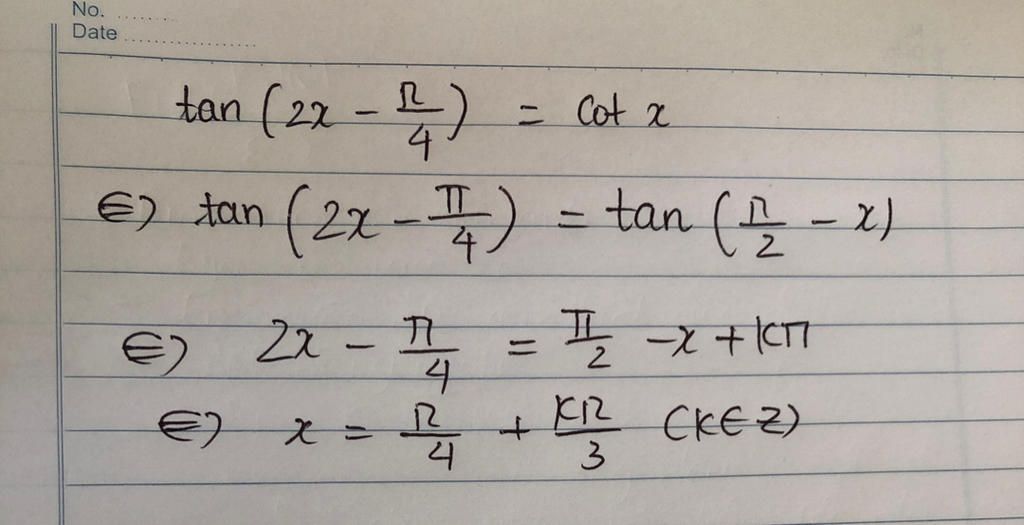 No. ........
Date ..................
tan (2x - π/4) = cot x
⇔ tan (2x - π/4) = tan (π/2 - x)
⇔ 2x - π/4 = π/2 - x + kπ
⇔ x = π/4 + kπ/3 (k∈Z)